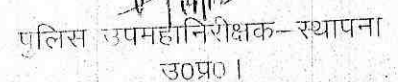 पुलिस उपमहानिरीक्षक-स्थापना
उ0प्र0।